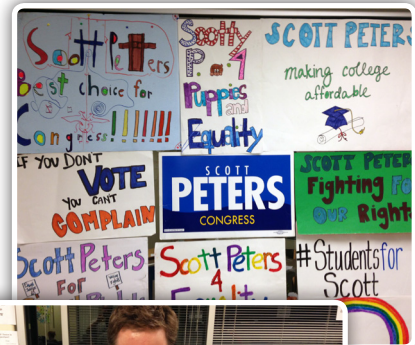 Scott Peters
Best choice for
Congress!!!!!!!!
Scotty
P. 4
Puppies
and
Equality
SCOTT PETERS
making college
affordable
IF YOU DON'T
VOTE
YOU CAN'T
COMPLAIN
SCOTT
PETERS
CONGRESS
SCOTT PETER
Fighting Fo
OUR Right
Scott Peters
For
Scott Peters
4
Equality
#Students for
Scott